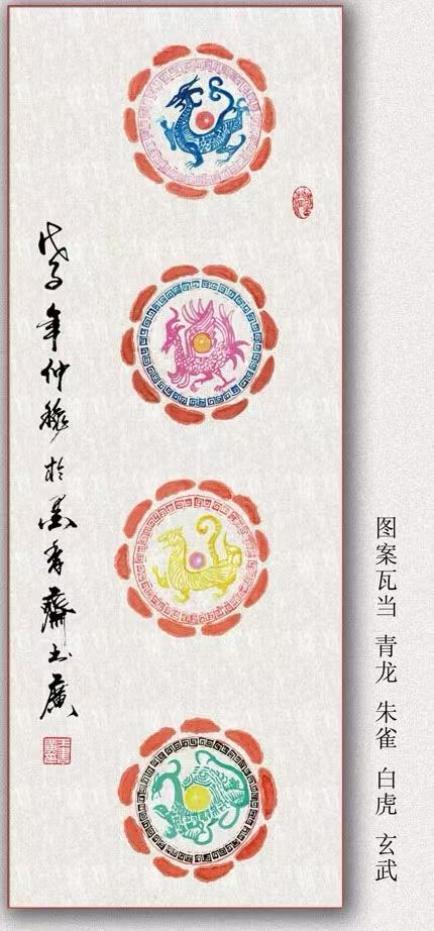 戊子年仲秋於墨香齋士廣
图案瓦当 青龙 朱雀 白虎 玄武